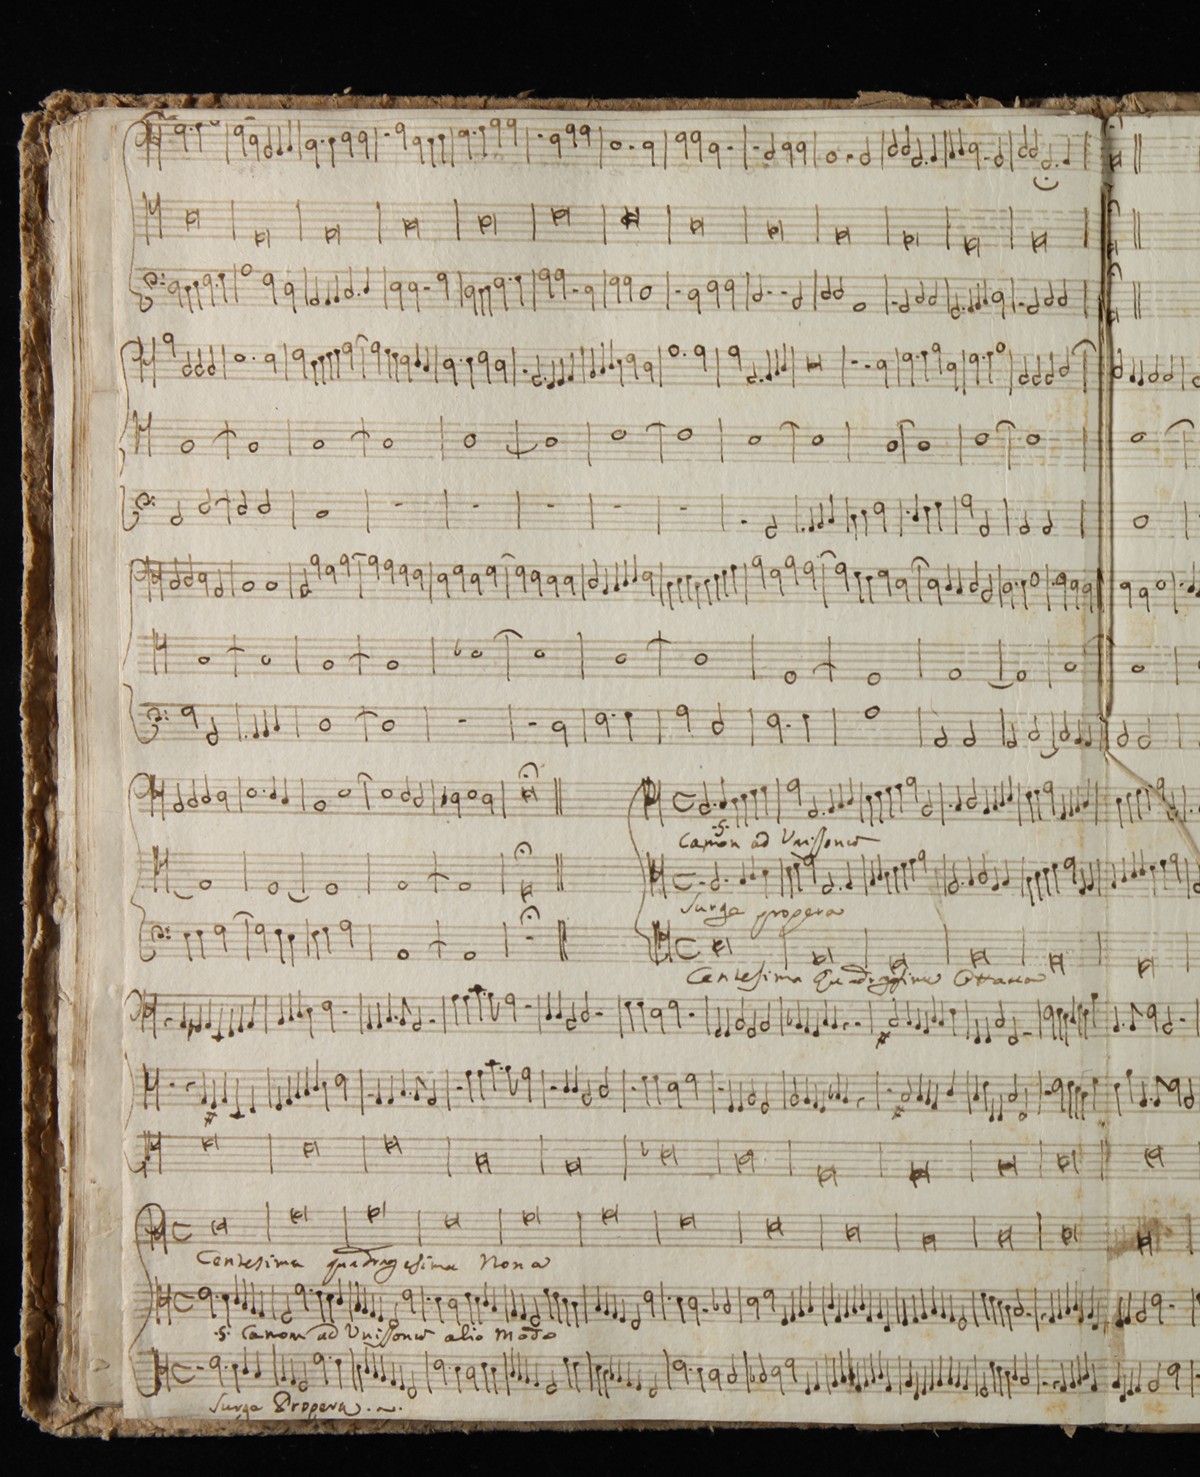 .S.
Canon ad Unissonũ
Surge propera
Centesima Quadragesima Ottaua
Centesima quadragesima Nona
.S. Canon ad Unissonũ alio Modo
Surge Propera .~.